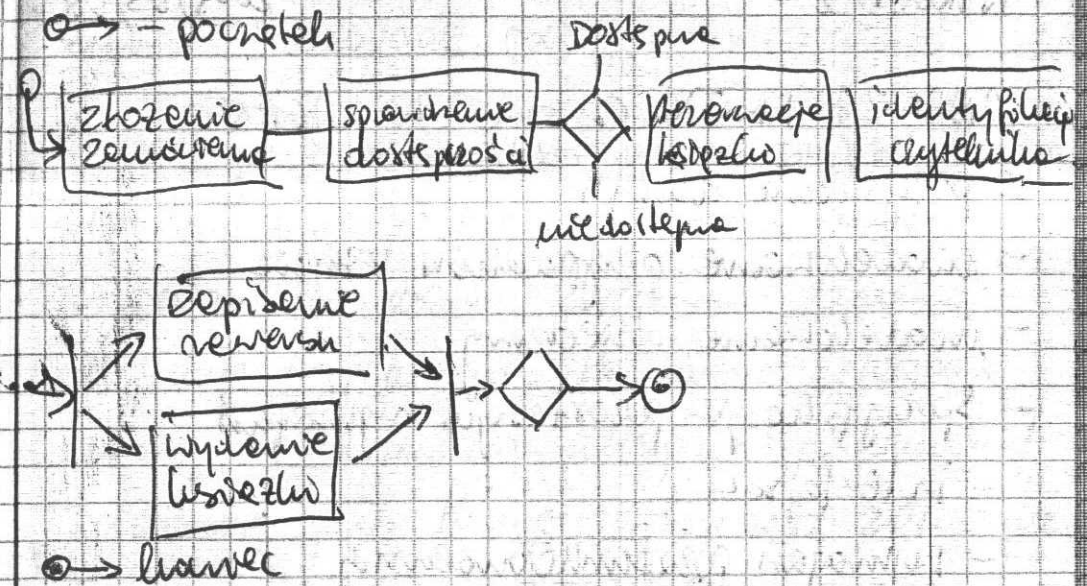 - początek
Dostępna
złożenie
zamówienia
sprawdzenie
dostępności
rezerwacja
książki
identyfikacja
czytelnika
niedostępna
zapisanie
rewersu
wydanie
książki
koniec